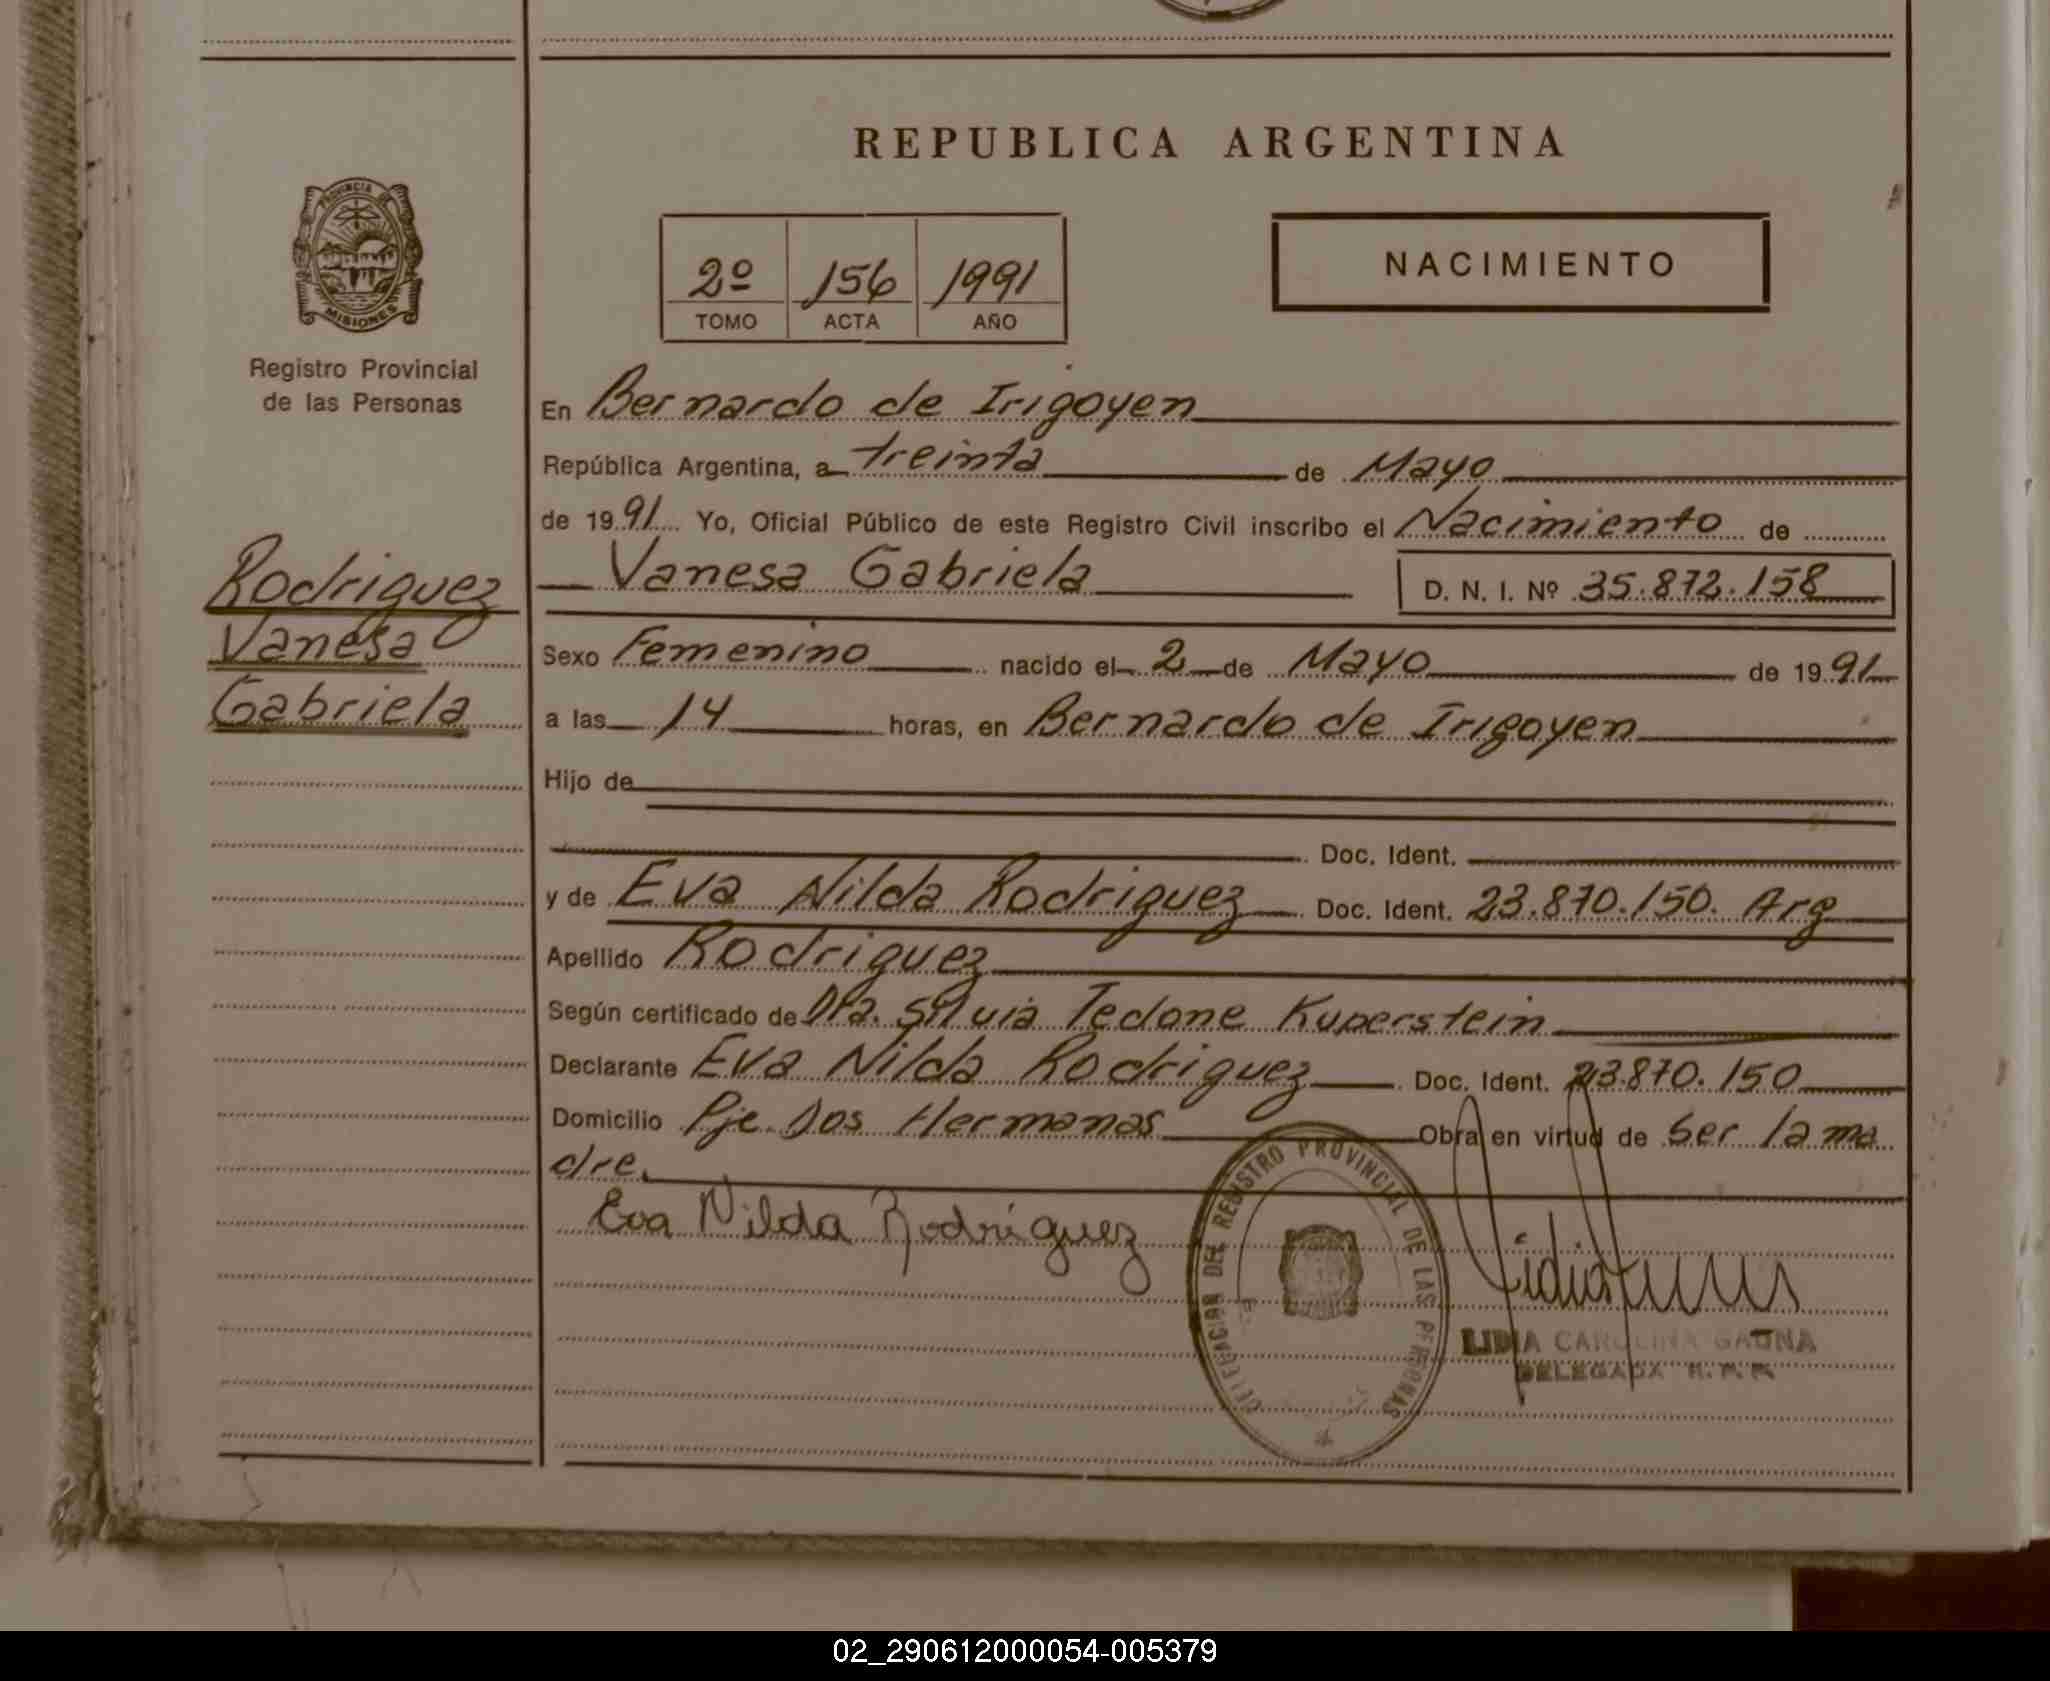 REPUBLICA ARGENTINA
PROVINCIA DE
MISIONES
Registro Provincial
de las Personas
2º 156 1991
TOMO ACTA AÑO
NACIMIENTO
En Bernardo de Irigoyen
República Argentina, a treinta de Mayo
de 1991 Yo, Oficial Público de este Registro Civil inscribo el Nacimiento de
Vanesa Gabriela D. N. I. Nº 35.872.158
Rodriguez
Vanesa
Gabriela
Sexo Femenino nacido el 2 de Mayo de 1991
a las 14 horas, en Bernardo de Irigoyen
Hijo de
Doc. Ident.
y de Eva Nilda Rodriguez Doc. Ident. 23.870.150. Arg
Apellido Rodriguez
Según certificado de Dra. Silvia Tedone Kuperstein
Declarante Eva Nilda Rodriguez Doc. Ident. 23.870.150
Domicilio Pje. Dos Hermanas Obra en virtud de Ser la ma
dre.
Eva Nilda Rodríguez
DELEGACION DEL REGISTRO PROVINCIAL DE LAS PERSONAS
LIDIA CAROLINA GAUNA
DELEGADA R.P.P.
02_290612000054-005379